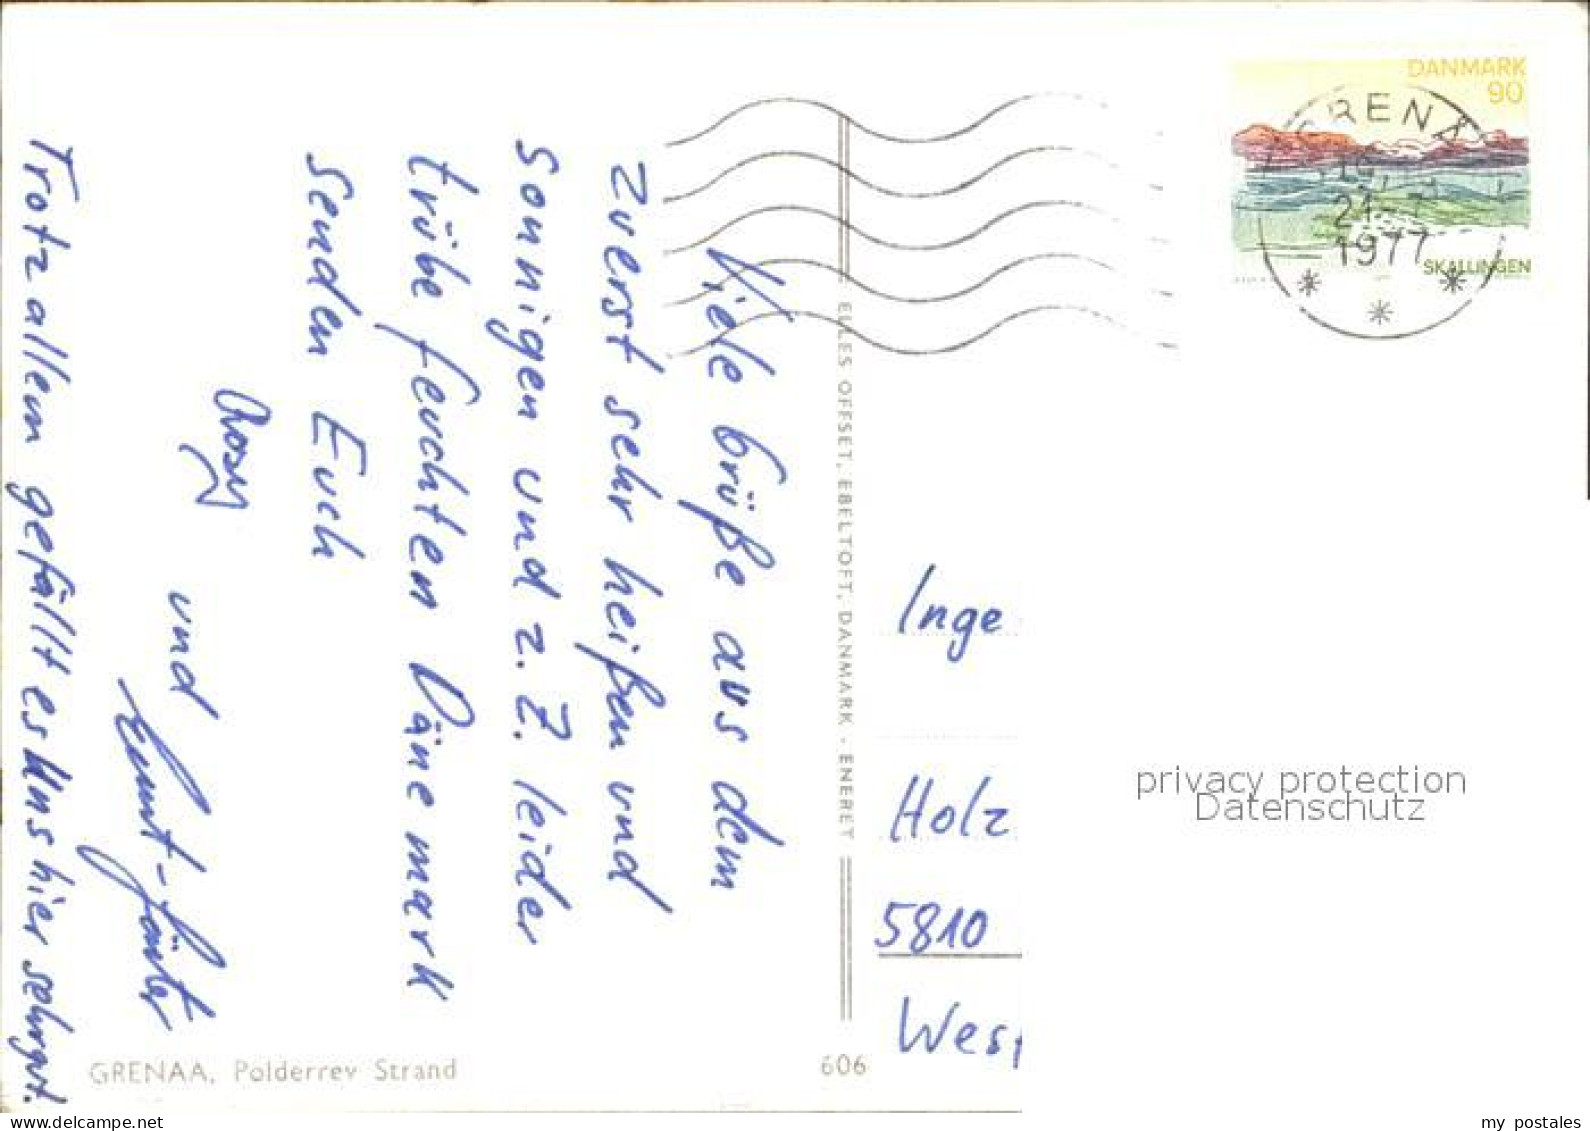 Viele Grüße aus dem
zuerst sehr heißen und
sonnigen und z. Z. leider
trübe feuchten Dänemark
senden Euch
Rosy
und
Trotz allem gefällt es uns hier sehr gut.
GRENAA, Polderrev Strand
606
ELLES OFFSET, EBELTOFT, DANMARK - ENERET
DANMARK
90
GRENÅ
1977
SKALLINGEN
Inge
Holz
5810
Wes
privacy protection
Datenschutz
www.delcampe.net
my_postales